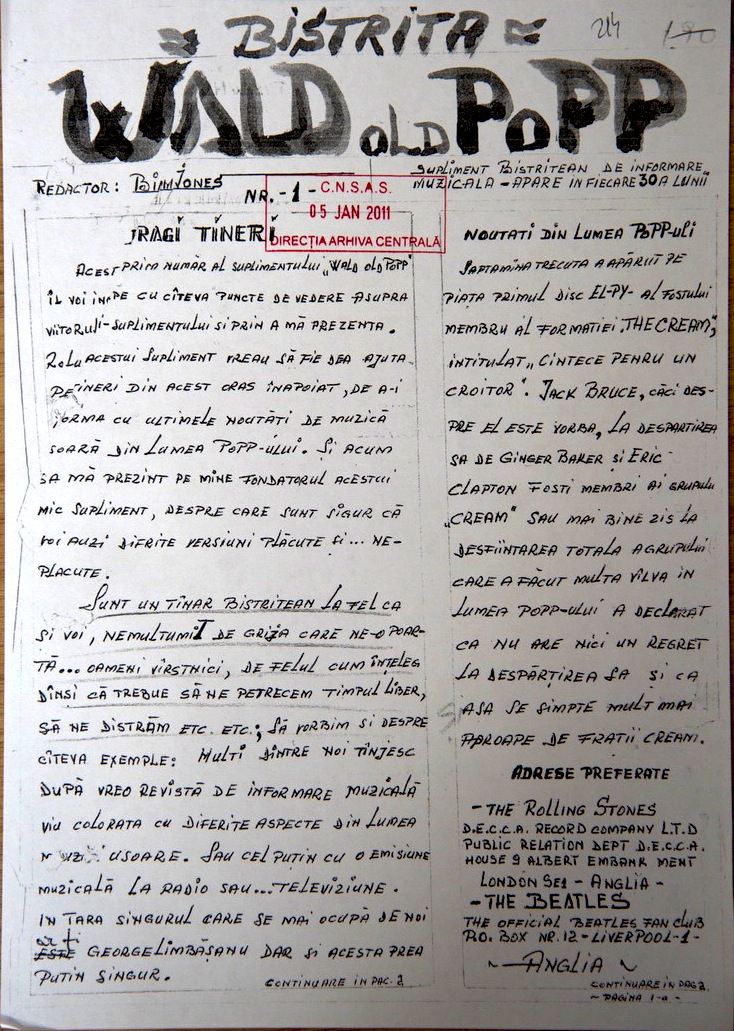 BISTRITA
214
190
WALD OLD POPP
SUPLIMENT BISTRITEAN DE INFORMARE
MUZICALA - APARE IN FIECARE 30 A LUNII
REDACTOR: BIMJONES
NR. -1-
C.N.S.A.S.
05 JAN 2011
DIRECȚIA ARHIVA CENTRALĂ
DRAGI TINERI
ACEST PRIM NUMĂR AL SUPLIMENTULUI „WALD OLD POPP"
ÎL VOI ÎNCEPE CU CÎTEVA PUNCTE DE VEDERE ASUPRA
VIITORULI-SUPLIMENTULUI SI PRIN A MĂ PREZENTA.
ROLU ACESTUI SUPLIMENT VREAU SĂ FIE DEA AJUTA
PE TINERI DIN ACEST ORAS ÎNAPOIAT, DE A-I
FORMA CU ULTIMELE NOUTĂTI DE MUZICĂ
SOARĂ DIN LUMEA POPP-ULUI. SI ACUM
SA MĂ PREZINT PE MINE FONDATORUL ACESTUI
MIC SUPLIMENT, DESPRE CARE SUNT SIGUR CĂ
VOI AUZI DIFRITE VERSIUNI PLĂCUTE SI... NE-
PLACUTE.
SUNT UN TINAR BISTRITEAN LA FEL CA
SI VOI, NEMULTUMIT DE GRIJA CARE NE-O POAR-
TĂ... OAMENI VÎRSTNICI, DE FELUL CUM ÎNTELEG
DÎNSI CĂ TREBUE SĂ NE PETRECEM TIMPUL LIBER,
SĂ NE DISTRĂM ETC. ETC.; SĂ VORBIM SI DESPRE
CÎTEVA EXEMPLE: MULTI DINTRE NOI TÎNJESC
DUPĂ VREO REVISTĂ DE INFORMARE MUZICALĂ
VIU COLORATA CU DIFERITE ASPECTE DIN LUMEA
MUZICI USOARE. SAU CEL PUTIN CU O EMISIUNE
MUZICALĂ LA RADIO SAU... TELEVIZIUNE.
IN TARA SINGURUL CARE SE MAI OCUPĂ DE NOI
AR FI
ESTE GEORGE LIMBĂSANU DAR SI ACESTA PREA
PUTIN SINGUR.
CONTINUARE IN PAG. 2
NOUTATI DIN LUMEA POPP-ULI
SAPTAMINA TRECUTA A APĂRUT PE
PIATA PRIMUL DISC EL-PY- AL FOSTULUI
MEMBRU AL FORMATIEI „THE CREAM",
INTITULAT „CINTECE PENRU UN
CROITOR". JACK BRUCE, CĂCI DES-
PRE EL ESTE VORBA, LA DESPARTIREA
SA DE GINGER BAKER SI ERIC
CLAPTON FOSTI MEMBRI AI GRUPULUI
„CREAM" SAU MAI BINE ZIS LA
DESFIINTAREA TOTALA A GRUPULUI
CARE A FĂCUT MULTA VILVA IN
LUMEA POPP-ULUI A DECLARAT
CA NU ARE NICI UN REGRET
LA DESPĂRTIREA SA SI CA
ASA SE SIMPTE MULT MAI
APROAPE DE FRATII CREAM.
ADRESE PREFERATE
- THE ROLLING STONES
D.E.C.C.A. RECORD COMPANY L.T.D
PUBLIC RELATION DEPT D.E.C.C.A.
HOUSE 9 ALBERT EMBANK MENT
LONDON SE1 - ANGLIA -
- THE BEATLES
THE OFFICIAL BEATLES FAN CLUB
P.O. BOX NR. 12 - LIVERPOOL - 1 -
~ ANGLIA ~
CONTINUARE IN PAG 2
~ PAGINA 1-a -